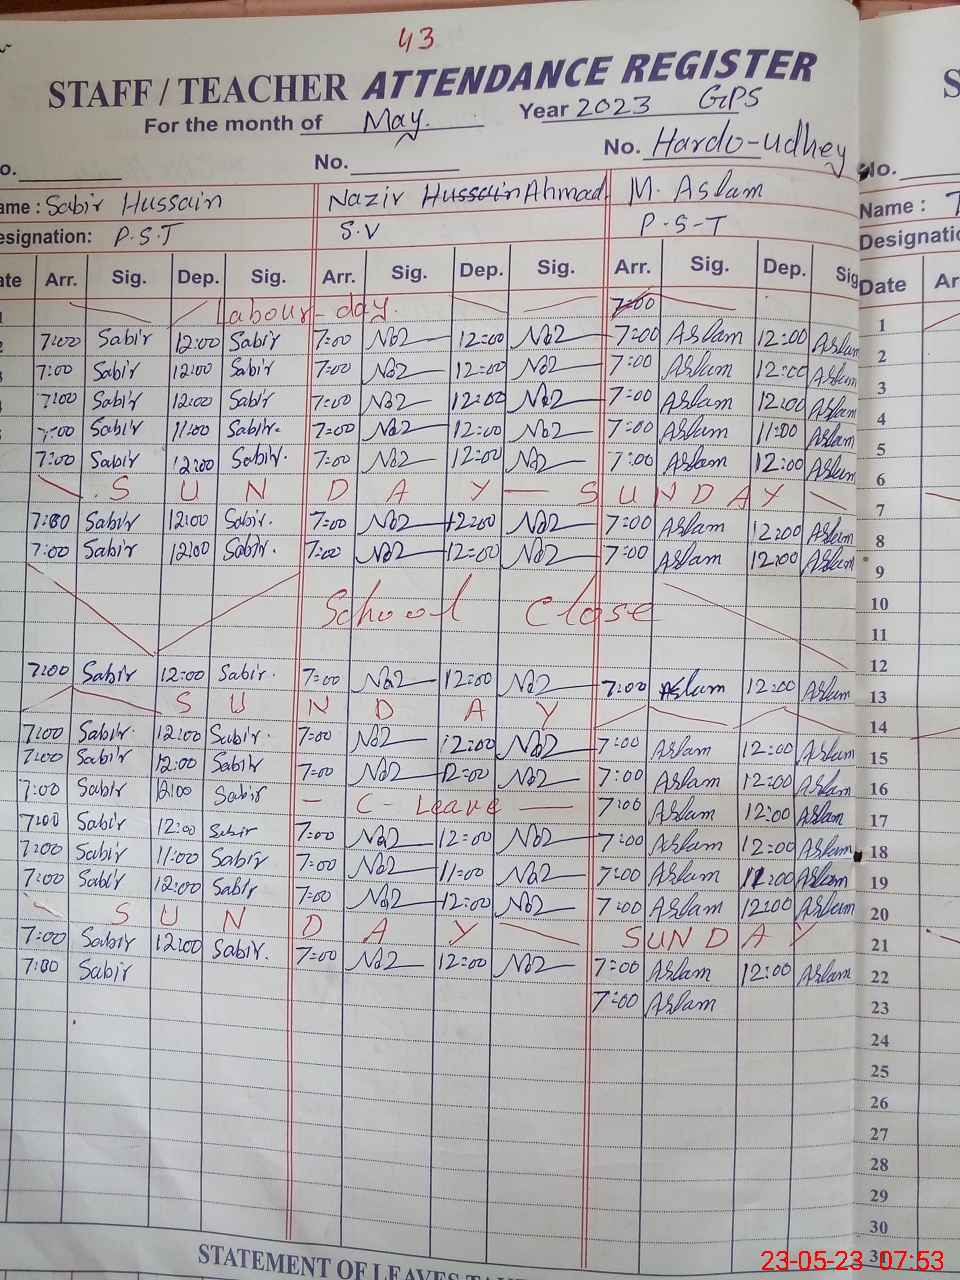 43
STAFF / TEACHER ATTENDANCE REGISTER
For the month of May. Year 2023 GPS
No. No. Hardo-udhey No.
ame : Sabir Hussain Nazir Hussain Ahmad M. Aslam Name :
esignation: P.S.T S.V P-S-T Designatio
ate Arr. Sig. Dep. Sig. Arr. Sig. Dep. Sig. Arr. Sig. Dep. Sig Date Ar
Labour-day. 7:00 1
7:00 Sabir 12:00 Sabir 7=00 12:00 7:00 Aslam 12:00 Aslam 2
7:00 Sabir 12:00 Sabir 7=00 12=00 7:00 Aslam 12:00 Aslam 3
7:00 Sabir 12:00 Sabir 7=00 12:00 7:00 Aslam 12:00 Aslam 4
7:00 Sabir 11:00 Sabir. 7=00 12:00 7:00 Aslam 11:00 Aslam 5
7:00 Sabir 12:00 Sabir. 7=00 12=00 7:00 Aslam 12:00 Aslam 6
S U N D A Y — S U N D A Y 7
7:00 Sabir 12:00 Sabir. 7=00 12=00 7:00 Aslam 12:00 Aslam 8
7:00 Sabir 12:00 Sabir. 7=00 12=00 7:00 Aslam 12:00 Aslam 9
School Close 10
11
12
7:00 Sabir 12:00 Sabir. 7=00 12:00 7:00 Aslam 12:00 Aslam 13
S U N D A Y 14
7:00 Sabir 12:00 Sabir. 7=00 12:00 7:00 Aslam 12:00 Aslam 15
7:00 Sabir 12:00 Sabir 7=00 12=00 7:00 Aslam 12:00 Aslam 16
7:00 Sabir 12:00 Sabir — C- Leave — 7:00 Aslam 12:00 Aslam 17
7:00 Sabir 12:00 Sabir 7=00 12=00 7:00 Aslam 12:00 Aslam 18
7:00 Sabir 11:00 Sabir 7=00 11=00 7:00 Aslam 11:00 Aslam 19
7:00 Sabir 12:00 Sabir 7=00 12:00 7:00 Aslam 12:00 Aslam 20
S U N D A Y SUNDAY 21
7:00 Sabir 12:00 Sabir. 7=00 12=00 7:00 Aslam 12:00 Aslam 22
7:00 Sabir 7:00 Aslam 23
24
25
26
27
28
29
30
STATEMENT OF LEAVES
23-05-23 07:53